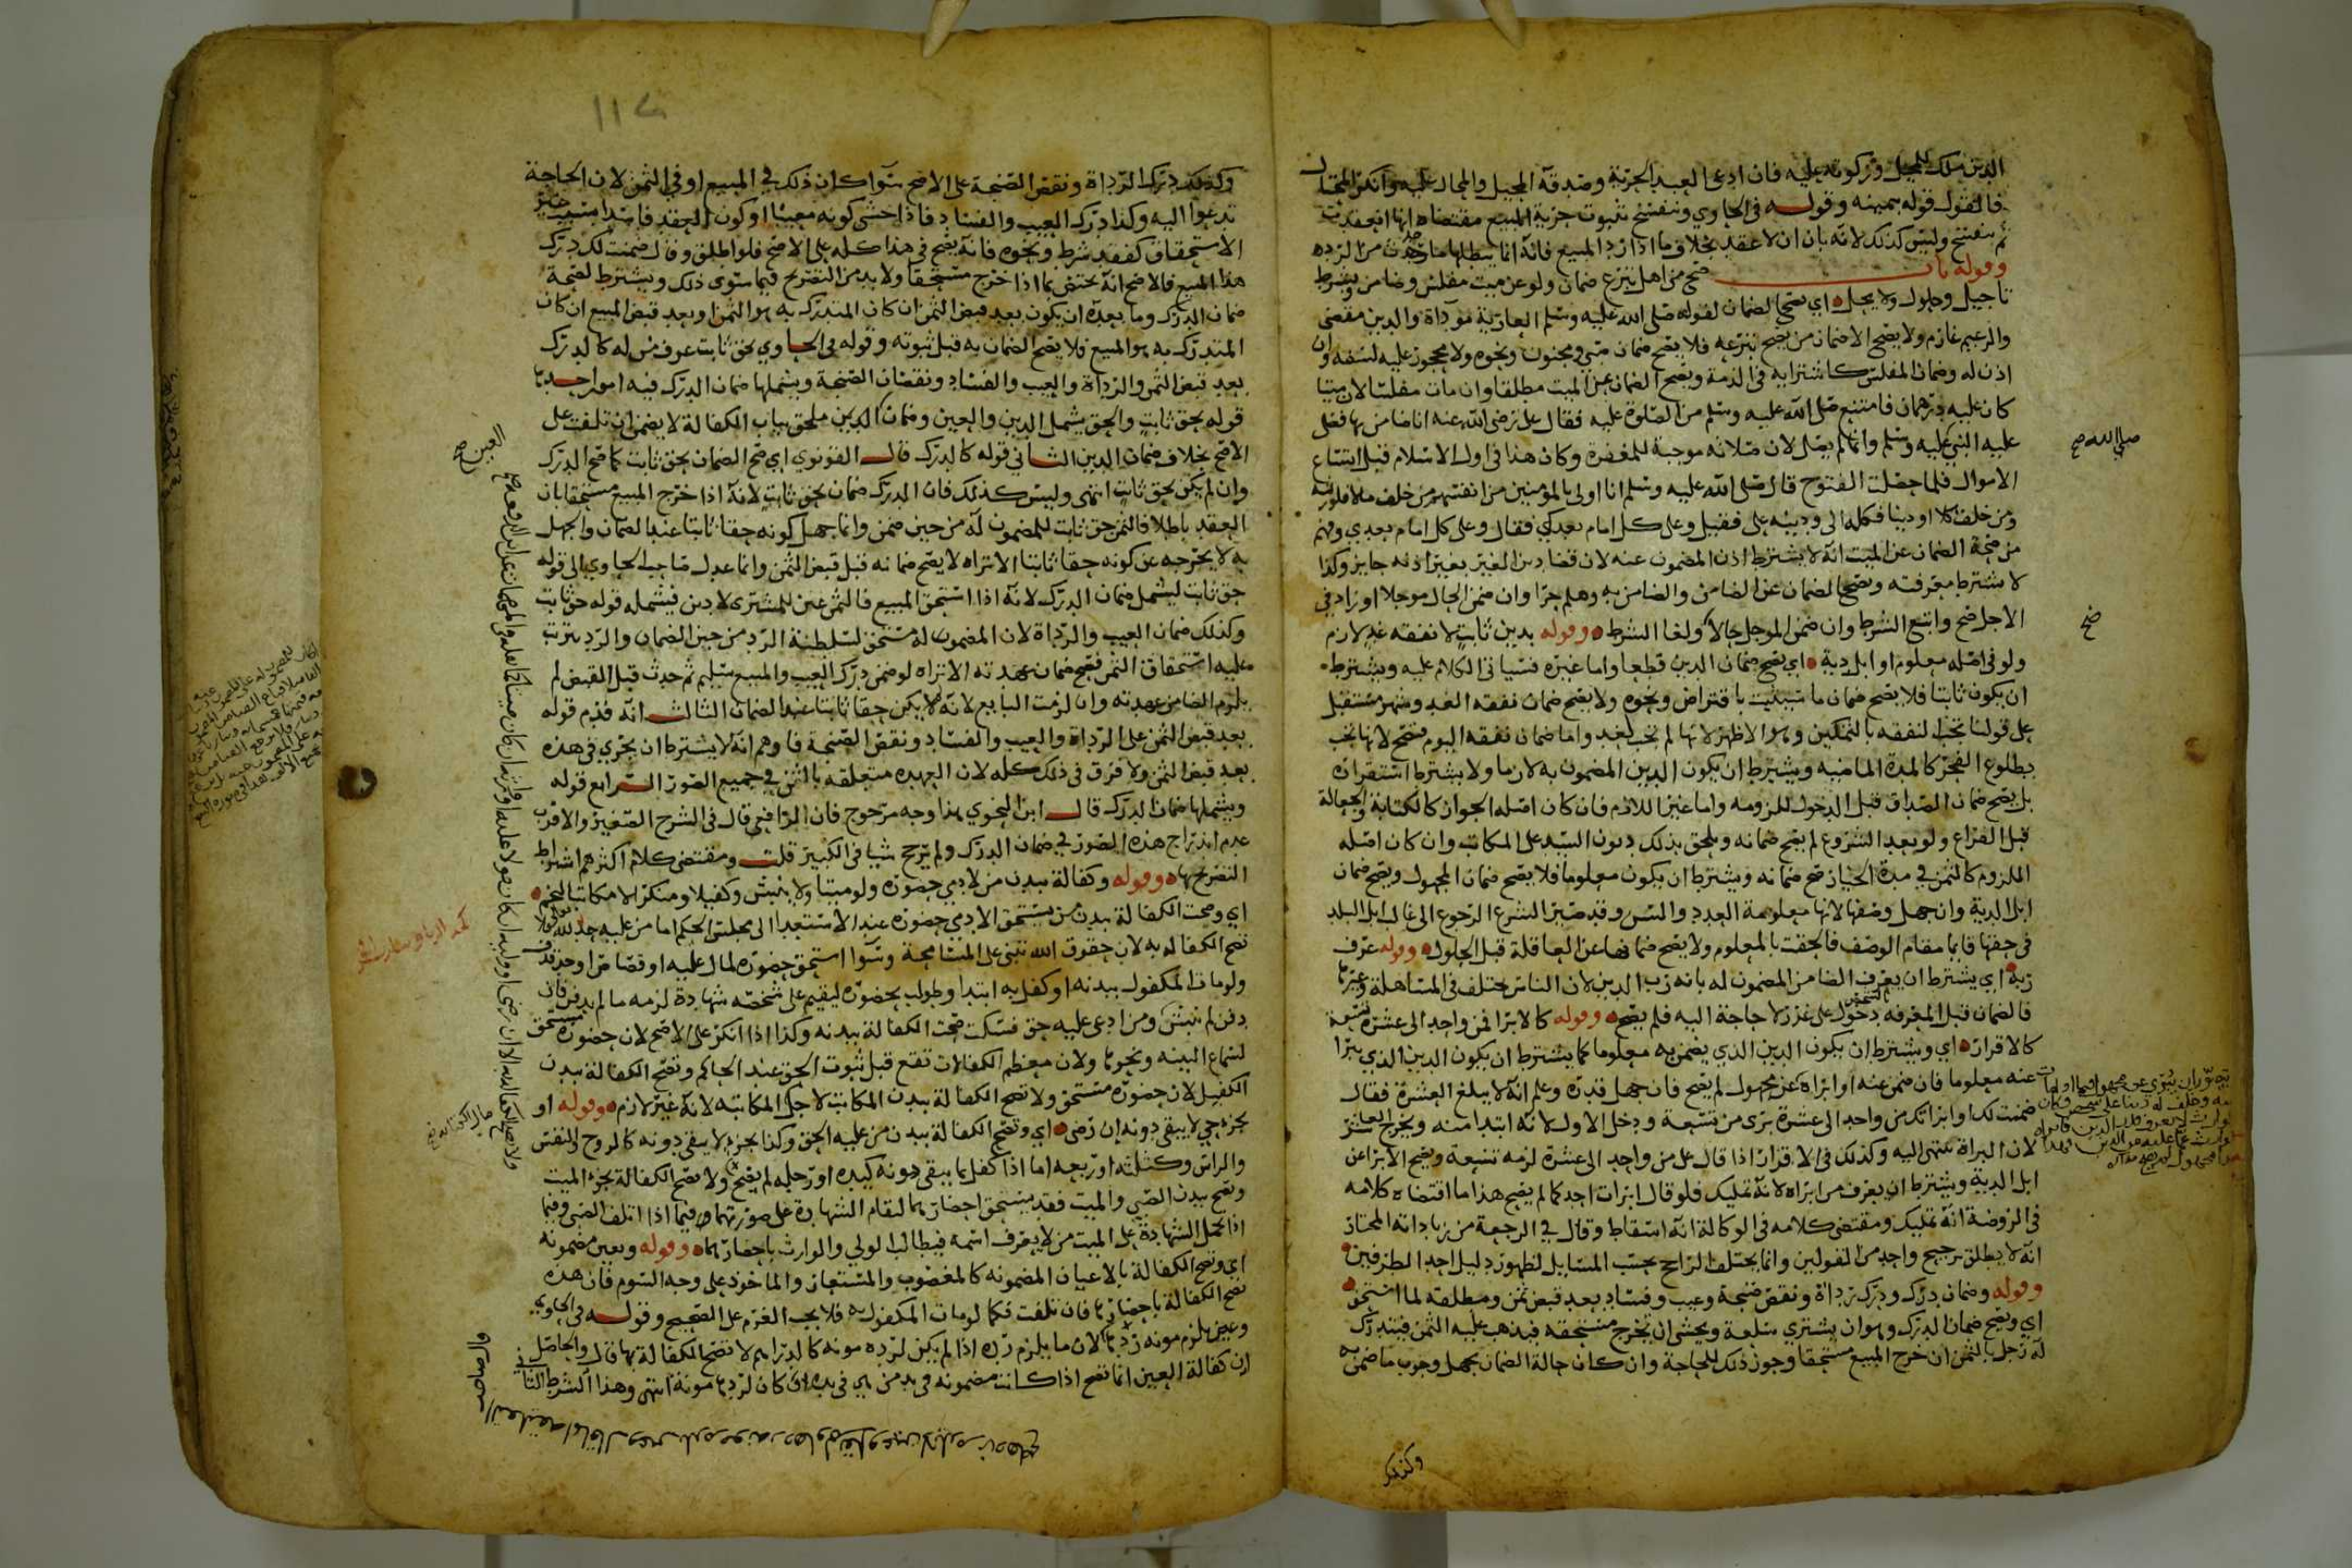 الدين ملك للمحيل وزكوته عليه فان ادعا العبد الحرية وصدقه المحيل والمحال عليه وانكر المحتال
فالقول قوله بيمينه وقوله في الحاوي وتنفسخ بثبوت حرية المبيع مقتضاه انها انعقدت
ثم تنفسخ وليس كذلك لانه بان ان لا عقد بخلاف ما اذا رد المبيع فانه انما يبطلها ما حدث من الرده
وقوله باب صح من اهل تبرع ضمان ولو عن ميت مفلس وضامن وبشرط
تاجيل وحلول ولا يحل اي يصح الضمان لقوله صلى الله عليه وسلم العارية موداة والدين مقضي
والزعيم غارم ولا يصح الا ضمان من يصح تبرعه فلا يصح ضمان صبي ومجنون ونحوه ولا محجور عليه لسفه وان
اذن له وضمان المفلس كاشترايه في الذمة ويصح الضمان عن الميت مطلقا وان مات مفلسا لان ميتا
كان عليه درهمان فامتنع صلى الله عليه وسلم من الصلوة عليه فقال علي رضي الله عنه انا ضامن بها فصلى
عليه النبي عليه وسلم وانما لم يصل لان صلاته موجبة للمغفرة وكان هذا في اول الاسلام قبل اتساع
الاموال فلما حصلت الفتوح قال صلى الله عليه وسلم انا اولى بالمؤمنين من انفسهم من خلف مالا فلورثته
ومن خلف كلا او دينا فكله الي ودينه علي فقيل وعلى كل امام بعدك فقال وعلى كل امام بعدي وفهم
من صحة الضمان عن الميت انه لا يشترط اذن المضمون عنه لان قضا دين الغير بغير اذنه جايز وكذا
لا تشترط معرفته ويصح الضمان عن الضامن والضامن به وهلم جرا وان ضمن الحال موجلا او زاد في
الاجل صح واتبع الشرط وان ضمن الموجل حالا ولغا الشرط وقوله بدين ثابت لا نفقه غد لازم
ولو في اصله معلوم او ابل دية اي يصح ضمان الدين قطعا واما غيره فسياتي الكلام عليه ويشترط
ان يكون ثابتا فلا يصح ضمان ما سيثبت باقتراض ونحوه ولا يصح ضمان نفقه الغد وشهر مستقبل
على قولنا تجب النفقه بالتمكين وهو الاظهر لانها لم تجب لغد واما ضمان نفقه اليوم فتصح لانها تجب
بطلوع الفجر كالمدة الماضيه ويشترط ان يكون الدين المضمون به لازما ولا يشترط استقراره
بل يصح ضمان الصداق قبل الدخول للزومه واما غير اللازم فان كان اصله الجواز كالكتابة والجعالة
قبل الفراغ ولو بعد الشروع لم يصح ضمانه ويلحق بذلك ديون السيد على المكاتب وان كان اصله
اللزوم كالثمن في مدة الخيار صح ضمانه ويشترط ان يكون معلوما فلا يصح ضمان المجهول ويصح ضمان
ابل الدية وان جهل وصفها لانها معلومة العدد والسن وقد صير الشرع الرجوع الى غالب ابل البلد
في حقها قايما مقام الوصف فالحقت بالمعلوم ولا يصح ضمانها عن العاقلة قبل الحلول وقوله عرف
ربه اي يشترط ان يعرف الضامن المضمون له بانه رب الدين لان الناس تختلف في المساهلة وغيرها
فالضمان قبل المعرفه دخول على غرر لا حاجة اليه فلم يصح وقوله كالابرا فمن واحد الى عشرة تسعة
كالاقرار اي ويشترط ان يكون الدين الذي يضمن به معلوما كما يشترط ان يكون الدين الذي يبرا
عنه معلوما فان ضمن عنه او ابراه عن مجهول لم يصح فان جهل قدره وعلم انه لا يبلغ العشرة فقال
ضمنت لك او ابراتك من واحد الى عشرة بري من تسعة ودخل الاول لانه ابتدا منه ويخرج العاشر
لان البراة تنتهي اليه وكذلك في الاقرار اذا قال علي من واحد الى عشرة لزمه تسعة ويصح الابرا عن
ابل الدية ويشترط ان يعرف من ابراه لانه تمليك فلو قال ابرات احدكما لم يصح هذا ما اقتضاه كلامه
في الروضة انه تمليك ومقتضى كلامه في الوكالة انه اسقاط وقال في الرجعة من زياداته المختار
انه لا يطلق ترجيح واحد من القولين وانما يختلف الراجح بحسب المسايل لظهور دليل احد الطرفين
وقوله وضمان درك ودرك رداة ونقص صنجة وعيب وفساد بعد قبض ثمن ومطلقه لما استحق
اي ويصح ضمان الدرك وهو ان يشتري سلعة ويخشى ان تخرج مستحقه فيذهب عليه الثمن فيتدرك
له رجل بالثمن ان خرج المبيع مستحقا وجوز ذلك للحاجة وان كان حالة الضمان يجهل وجوب ما ضمن به
وكذلك
صلى الله صح
صح
وكذلك درك الرداة ونقص الصنجة على الاصح سوا كان ذلك في المبيع او في الثمن لان الحاجة
تدعوا اليه وكذا درك العيب والفساد فاذا خشي كونه معيبا او كون العقد فاسدا بسبب غير
الاستحقاق كفقد شرط ونحوه فانه يصح في هذا كله على الاصح فلو اطلق وقال ضمنت لك درك
هذا المبيع فالاصح انه يختص بما اذا خرج مستحقا ولا بد من التصريح فيما سوى ذلك ويشترط لصحة
ضمان الدرك وما بعده ان يكون بعد قبض الثمن ان كان المتدرك به هو الثمن او بعد قبض المبيع ان كان
المتدرك به هو المبيع فلا يصح الضمان به قبل ثبوته وقوله في الحاوي بحق ثابت عرف من له كالدرك
بعد قبض الثمن والرداة والعيب والفساد ونقصان الصنجة ويشملها ضمان الدرك فيه امور احدها
قوله بحق ثابت والحق يشمل الدين والعين وضمان الدين ملحق بباب الكفالة لا يضمن ان تلفت على
الاصح بخلاف ضمان الدين الثاني قوله كالدرك قال القونوي اي صح الضمان بحق ثابت كما صح الدرك
وان لم يكن بحق ثابت انتهى وليس كذلك فان الدرك ضمان بحق ثابت لانه اذا خرج المبيع مستحقا بان
العقد باطلا فالثمن حق ثابت للمضمون له من حين ضمن وانما جهل كونه حقا ثابتا عند الضمان والجهل
به لا يخرجه عن كونه حقا ثابتا الا تراه لا يصح ضمانه قبل قبض الثمن وانما عدل صاحب الحاوي الى قوله
حق ثابت ليشمل ضمان الدرك لانه اذا استحق المبيع فالثمن عين للمشتري لا دين فيشمله قوله حق ثابت
وكذلك ضمان العيب والرداة لان المضمون له مستحق لسلطنة الرد من حين الضمان والرد يترتب
عليه استحقاق الثمن فصح ضمان عهدته الا تراه لو ضمن درك العيب والمبيع سليم ثم حدث قبل القبض لم
يلزم الضامن عهدته وان لزمت البايع لانه لم يكن حقا ثابتا عند الضمان الثالث انه قدم قوله
بعد قبض الثمن على الرداة والعيب والفساد ونقص الصنجة فاوهم انه لا يشترط ان يجري في هذه
بعد قبض الثمن ولا فرق في ذلك كله لان العهده متعلقه بالثمن في جميع الصور الرابع قوله
ويشملها ضمان الدرك قال ابن النحوي هذا وجه مرجوح فان الرافعي قال في الشرح الصغير والاقرب
عدم اندراج هذه الصور في ضمان الدرك ولم يرجح شيا في الكبير قلت ومقتضى كلام اكثرهم اشتراط
التصريح بها وقوله وكفالة ببدن من لادمي حضوره ولو ميتا ولا ينبش وكفيلا ومنكرا لا مكاتبا لنجم
اي وصحت الكفالة ببدن من يستحق الادمي حضوره عند الاستعدا الى مجلس الحكم اما من عليه حد لله تعالى فلا
تصح الكفاله به لان حقوق الله تبنى على المسامحة وسوا استحق حضوره لمال عليه او قصاص او حد قذف
ولو مات المكفول ببدنه او كفل به ابتدا وطولب بحضوره ليقيم على شخصه شهادة لزمه ما لم يدفن فان
دفن لم ينبش ومن ادعي عليه حق فسكت صحت الكفالة ببدنه وكذا اذا انكر على الاصح لان حضوره مستحق
لسماع البينه ونحوها ولان معظم الكفالات تقع قبل ثبوت الحق عند الحاكم وتصح الكفالة ببدن
الكفيل لان حضوره مستحق ولا تصح الكفالة ببدن المكاتب لاجل المكاتبه لانه غير لازم وقوله او
بجزء حي لا يبقى دونه ان رضي اي وتصح الكفالة ببدن من عليه الحق وكذا بجزء لا يبقى دونه كالروح والنفس
والراس وكثلثه او ربعه اما اذا كفل بما يبقى دونه كيده او رجله لم يصح ولا تصح الكفالة بجزء الميت
وتصح ببدن الصبي والميت فقد يستحق احضارهما لتقام الشهادة على صورتهما وفيما اذا اتلف الصبي وفيما
اذا تحمل الشهادة على الميت من لا يعرف اسمه فيطالب الولي والوارث باحضارهما وقوله وبعين مضمونه
اي وتصح الكفالة بالاعيان المضمونه كالمغصوب والمستعار والماخوذ على وجه السوم فان هذه
تصح الكفالة باحضارها فان تلفت فكما لو مات المكفول به فلا يجب الغرم على الصحيح وقوله في الحاوي
وعين يلزم مونه ردها لان ما يلزم رده اذا لم يكن لرده مونه كالدراهم لا تصح الكفالة بها قال والحاصل
ان كفالة العين انما تصح اذا كانت مضمونه في يد من هي في يده وان كان لردها مونة انتهى وهذا الشرط الثاني
العين صح